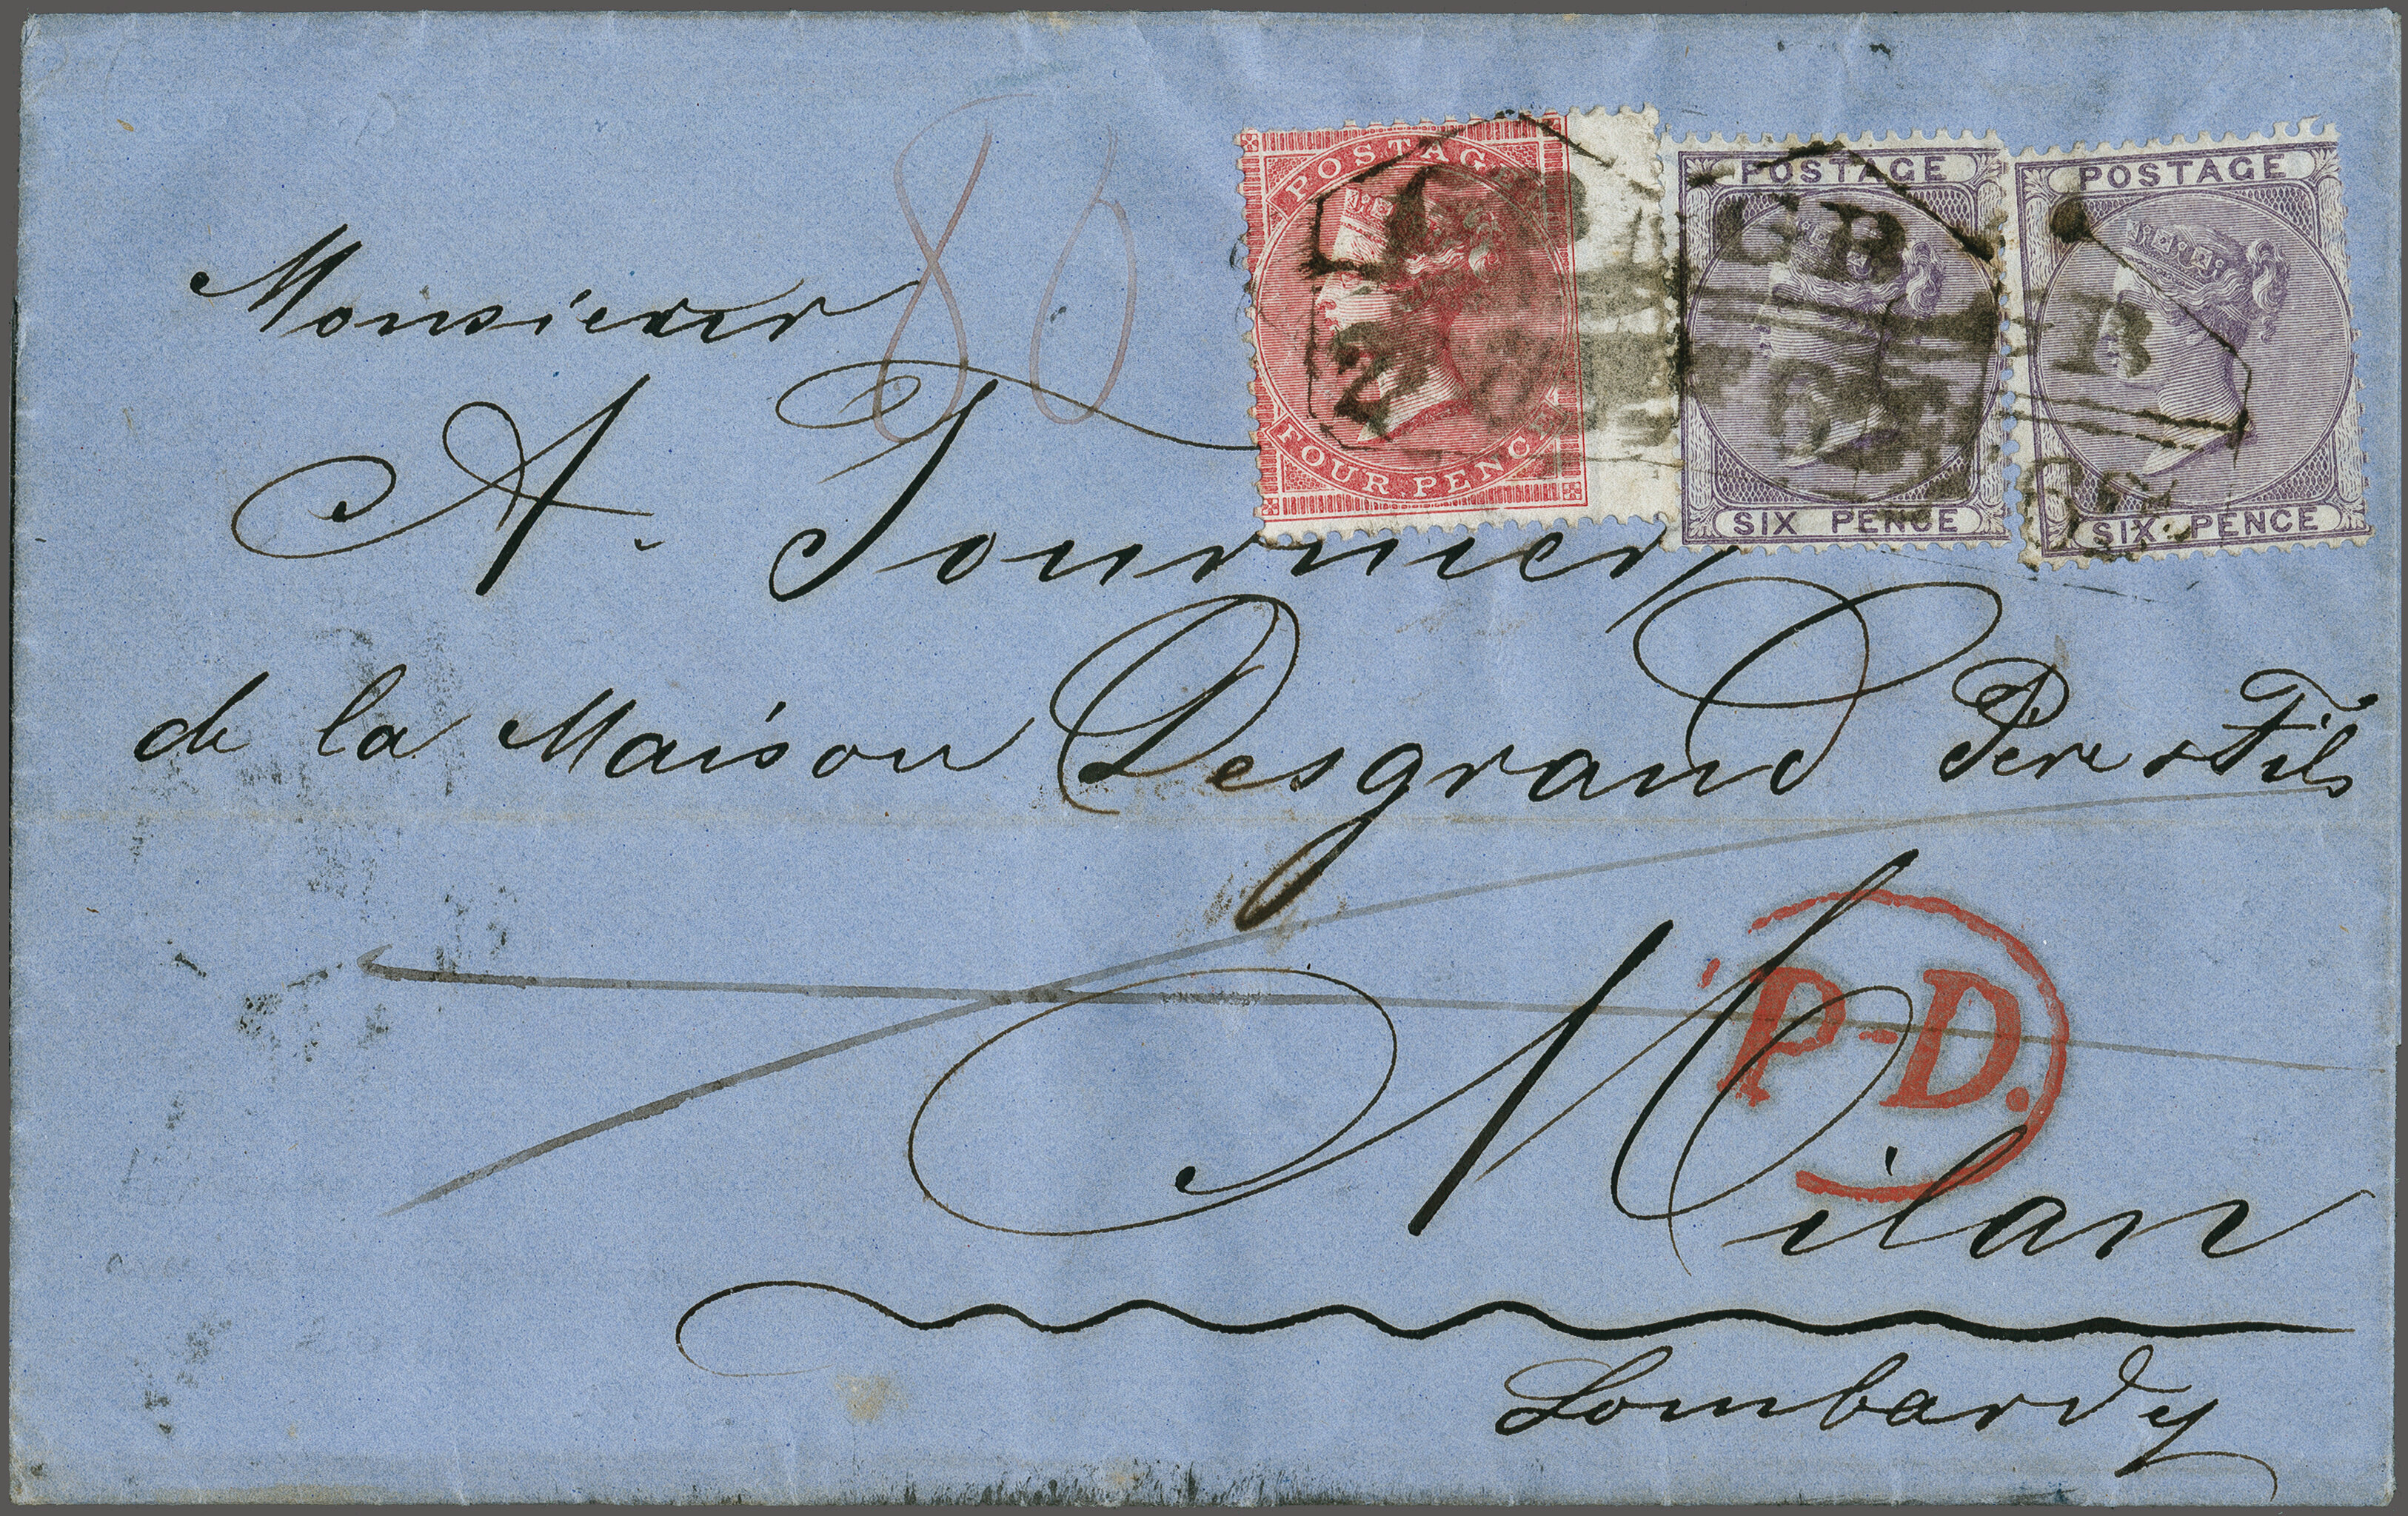 80
POSTAGE
FOUR PENCE
POSTAGE
SIX PENCE
POSTAGE
SIX PENCE
GB
Monsieur
A. Fournier,
de la Maison Desgrand Père & Fils
Milan
P-D.
Lombardy